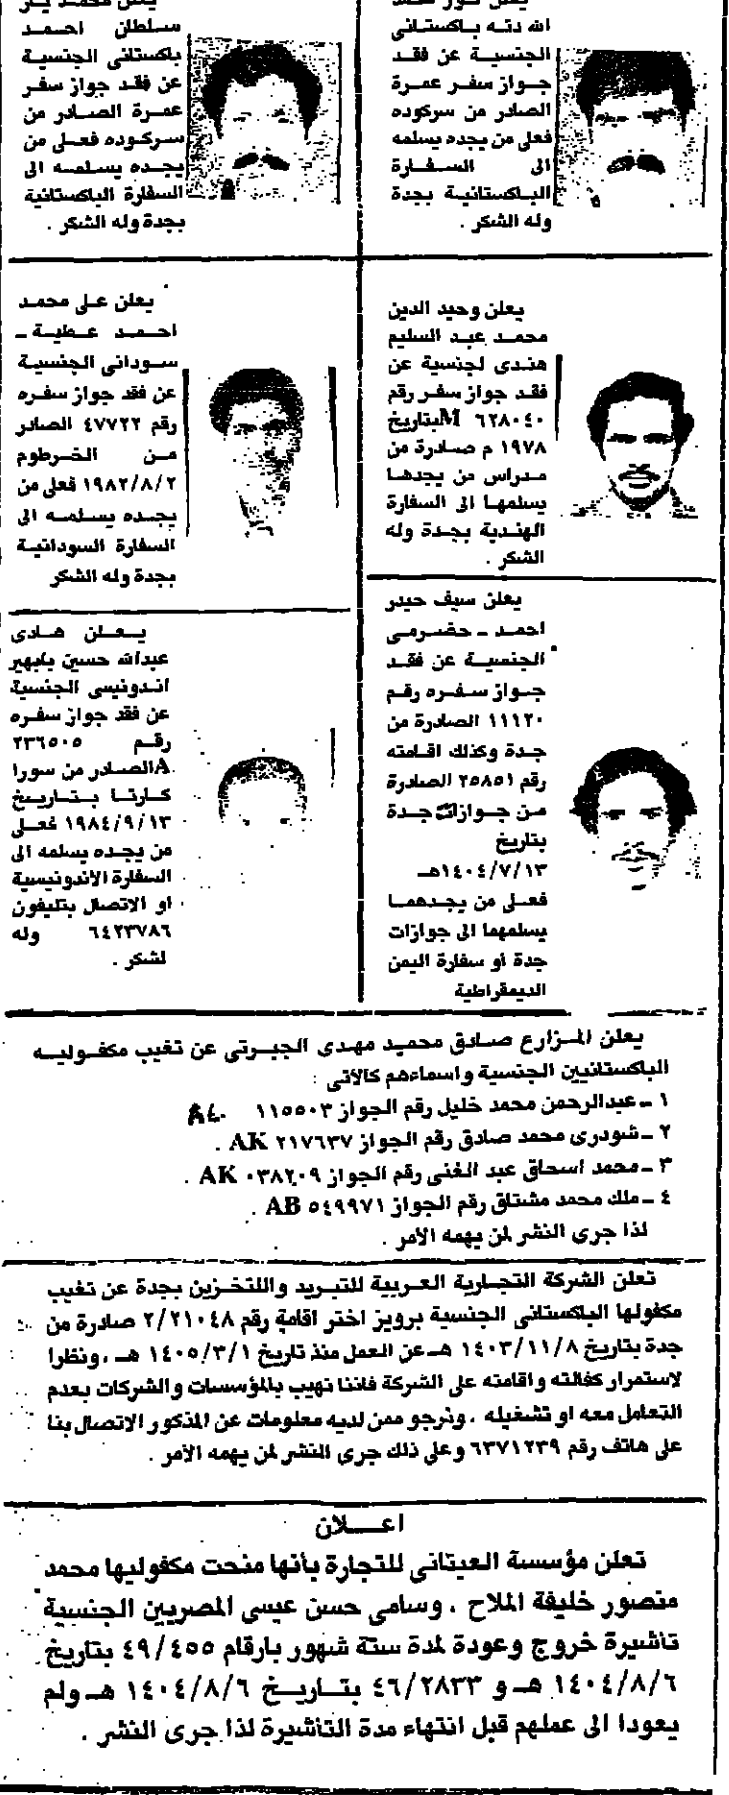 الله دته باكستانى
الجنسية عن فقد
جواز سفر عمرة
الصادر من سركوده
فعلى من يجده يسلمه
الى السفارة
الباكستانية بجدة
وله الشكر .
سلطان احمد
باكستانى الجنسية
عن فقد جواز سفر
عمرة الصادر من
سركوده فعلى من
يجده يسلمه الى
السفارة الباكستانية
بجدة وله الشكر .
يعلن وحيد الدين
محمد عبد السليم
هندى لجنسية عن
فقد جواز سفر رقم
٦٢٨٠٤٠ M بتاريخ
١٩٧٨ م صادرة من
مدراس من يجدها
يسلمها الى السفارة
الهندية بجدة وله
الشكر .
يعلن على محمد
احمد عطية ـ
سودانى الجنسية
عن فقد جواز سفره
رقم ٤٧٧٢٢ الصادر
من الخرطوم
١٩٨٢/٨/٢ فعلى من
يجده يسلمه الى
السفارة السودانية
بجدة وله الشكر
يعلن سيف حيدر
احمد ـ حضرمى
الجنسية عن فقد
جواز سفره رقم
١١١٢٠ الصادرة من
جدة وكذلك اقامته
رقم ٢٥٨٥١ الصادرة
من جوازات جدة
بتاريخ
١٤٠٤/٧/١٣هـ
فعلى من يجدهما
يسلمهما الى جوازات
جدة أو سفارة اليمن
الديمقراطية
يعلن هادى
عبدالله حسين بابهير
اندونيسى الجنسية
عن فقد جواز سفره
رقم ٢٣٦٥٠٥
A الصادر من سورا
كارتا بتاريخ
١٩٨٤/٩/١٣ فعلى
من يجده يسلمه الى
السفارة الاندونيسية
او الاتصال بتليفون
٦٤٢٣٧٨٦ وله
لشكر .
يعلن المزارع صادق محميد مهدى الجبرتى عن تغيب مكفوليه
الباكستانيين الجنسية واسماءهم كالآتى :
١ ـ عبدالرحمن محمد خليل رقم الجواز ١١٥٥٠٣
٢ ـ شودرى محمد صادق رقم الجواز ٢١٧٦٣٧ AK .
٣ ـ محمد اسحاق عبد الغنى رقم الجواز ٠٣٨٢٠٩ AK .
٤ ـ ملك محمد مشتاق رقم الجواز ٥٤٩٩٧١ AB .
لذا جرى النشر لمن يهمه الأمر .
تعلن الشركة التجارية العربية للتبريد واللتخزين بجدة عن تغيب
مكفولها الباكستانى الجنسية برويز اختر اقامة رقم ٢/٢١٠٤٨ صادرة من
جدة بتاريخ ١٤٠٣/١١/٨ هـ عن العمل منذ تاريخ ١٤٠٥/٣/١ هـ ، ونظرا
لاستمرار كفالته واقامته على الشركة فاننا نهيب بالمؤسسات والشركات بعدم
التعامل معه او تشغيله ، ونرجو ممن لديه معلومات عن المذكور الاتصال بنا
على هاتف رقم ٦٣٧١٢٣٩ وعلى ذلك جرى النشر لمن يهمه الأمر .
اعـــلان
تعلن مؤسسة العيتانى للتجارة بأنها منحت مكفوليها محمد
منصور خليفة الملاح ، وسامى حسن عيسى المصريين الجنسية
تاشيرة خروج وعودة لمدة ستة شهور بارقام ٤٩/٤٥٥ بتاريخ
١٤٠٤/٨/٦ هـ و ٤٦/٢٨٣٣ بتاريخ ١٤٠٤/٨/٦ هـ ولم
يعودا الى عملهم قبل انتهاء مدة التأشيرة لذا جرى النشر .